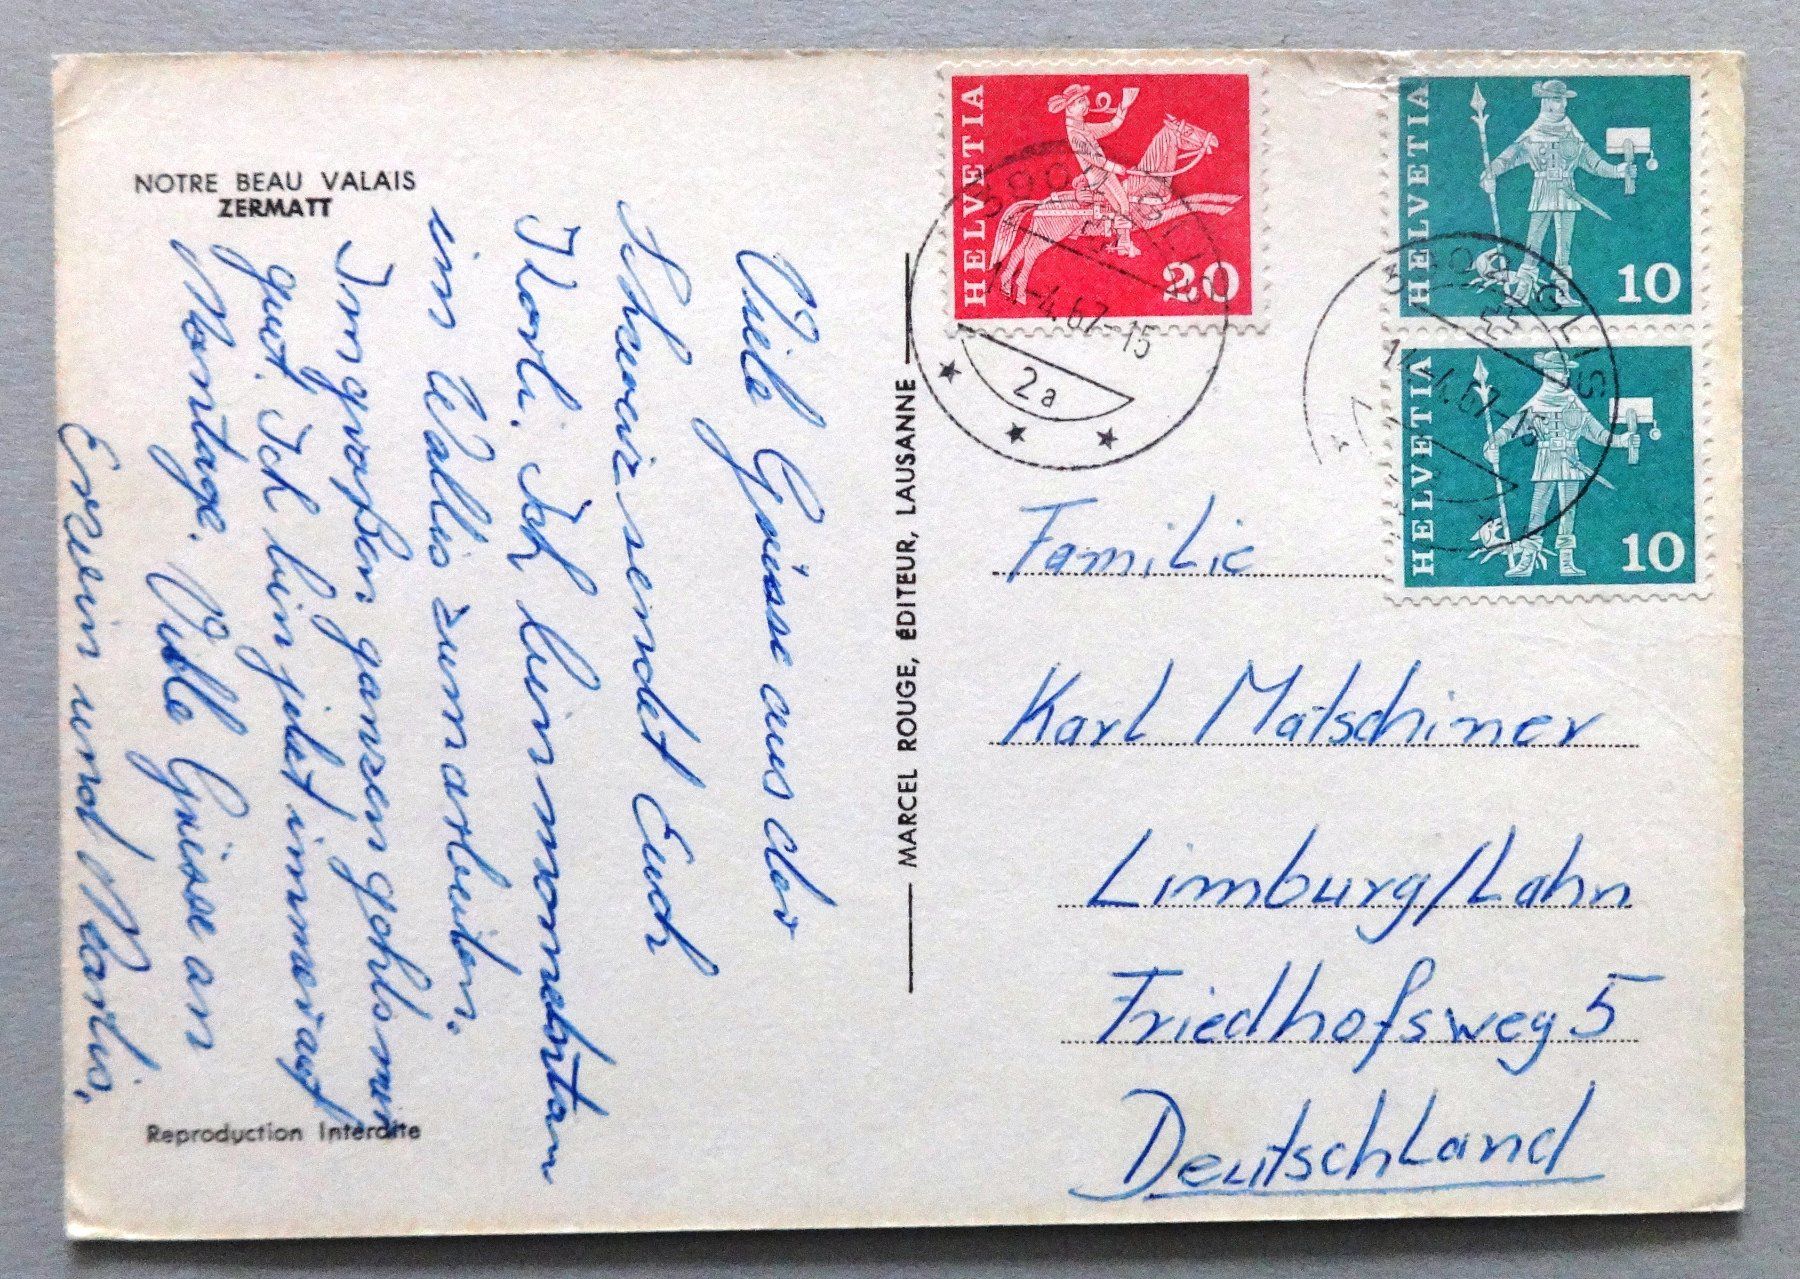 NOTRE BEAU VALAIS
ZERMATT
Viele Grüsse aus der
Schweiz sendet Euch
Karli. Ich bin momentan
im Wallis zum arbeiten.
Im grossen ganzen gehts mir
gut. Ich bin jetzt immer auf
Montage. Viele Grüsse an
Erwin und
Reproduction Interdite
MARCEL ROUGE, ÉDITEUR, LAUSANNE
HELVETIA
20
HELVETIA
10
HELVETIA
10
3902 GLIS
14.-4.67-15
2a
3902 GLIS
14.-4.67-15
Familie
Karl Matschiner
Limburg/Lahn
Friedhofsweg 5
Deutschland